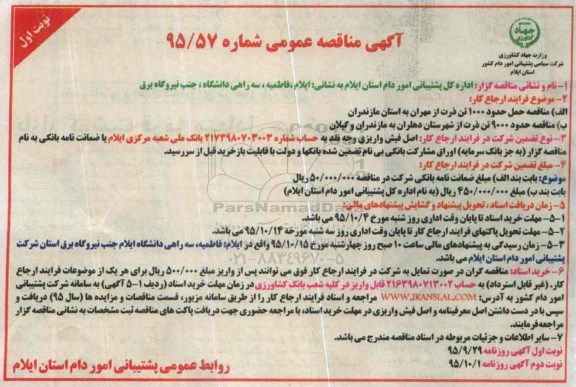 نوبت اول
جهاد کشاورزی
وزارت جهاد کشاورزی
شرکت سهامی پشتیبانی امور دام کشور
استان ایلام
آگهی مناقصه عمومی شماره ۹۵/۵۷
۱- نام و نشانی مناقصه گزار: اداره کل پشتیبانی امور دام استان ایلام به نشانی: ایلام ،فاطمیه، سه راهی دانشگاه ، جنب نیروگاه برق
۲- موضوع فرایند ارجاع کار:
الف) مناقصه حمل حدود ۱۰۰۰ تن ذرت از مهران به استان مازندران
ب) مناقصه حدود ۹۰۰۰ تن ذرت از شهرستان دهلران به مازندران و گیلان
۳- نوع تضمین شرکت در فرایند ارجاع کار: اصل فیش واریزی وجه نقد به حساب شماره ۲۱۷۳۹۸۰۷۰۳۰۰۳ بانک ملی شعبه مرکزی ایلام یا ضمانت نامه بانکی به نام
مناقصه گزار (به جز بانک سرمایه) اوراق مشارکت بانکی بی نام تضمین شده بانکها و دولت با قابلیت بازخرید قبل از سررسید.
۴- مبلغ تضمین شرکت در فرایند ارجاع کار:
موضوع: بابت بند الف) مبلغ ضمانت نامه بانکی شرکت در مناقصه ۵۰/۰۰۰/۰۰۰ ریال
بابت بند ب) مبلغ ۴۵۰/۰۰۰/۰۰۰ ریال (به نام اداره کل پشتیبانی امور دام استان ایلام)
۵- زمان دریافت اسناد، تحویل پیشنهاد و گشایش پیشنهادهای مالی:
۱-۵- مهلت خرید اسناد تا پایان وقت اداری روز شنبه مورخ ۹۵/۱۰/۴ می باشد.
۲-۵- مهلت تحویل پاکتهای فرایند ارجاع کار تا پایان وقت اداری روز سه شنبه مورخه ۹۵/۱۰/۱۴ می باشد.
۳-۵- زمان رسیدگی به پیشنهادهای مالی ساعت ۱۰ صبح روز چهارشنبه مورخ ۹۵/۱۰/۱۵ واقع در ایلام؛ فاطمیه، سه راهی دانشگاه ایلام جنب نیروگاه برق استان شرکت
پشتیبانی امور دام استان ایلام می باشد.
۶- خرید اسناد: مناقصه گران در صورت تمایل به شرکت در فرایند ارجاع کار فوق می توانند پس از واریز مبلغ ۵۰۰/۰۰۰ ریال برای هر یک از موضوعات فرایند ارجاع
کار، (غیر قابل استرداد) به حساب ۲۱۶۳۹۸۰۷۱۳۰۰۲ قابل واریز در کلیه شعب بانک کشاورزی در زمان مهلت خرید اسناد (ردیف ۱-۵ آگهی) به سامانه شرکت پشتیبانی
امور دام کشور به آدرس: WWW.IRANSLAL.COM مراجعه و اسناد فرایند ارجاع کار را از طریق سامانه مزبور، قسمت مناقصات و مزایده ها (سال ۹۵) دریافت و
سپس با در دست داشتن اصل معرفینامه و اصل فیش واریزی در مهلت خرید اسناد، با مراجعه حضوری جهت دریافت پاکت های مناقصه ثبت مشخصات به نشانی مناقصه گزار
مراجعه فرمایند.
۷- سایر اطلاعات و جزئیات مربوطه در اسناد مناقصه مندرج می باشد.
نوبت اول آگهی روزنامه ۹۵/۹/۲۹
نوبت دوم آگهی روزنامه ۹۵/۱۰/۱
روابط عمومی پشتیبانی امور دام استان ایلام
ParsNamadData
۰۲۱-۸۸۳۴۹۶۷۰-۵